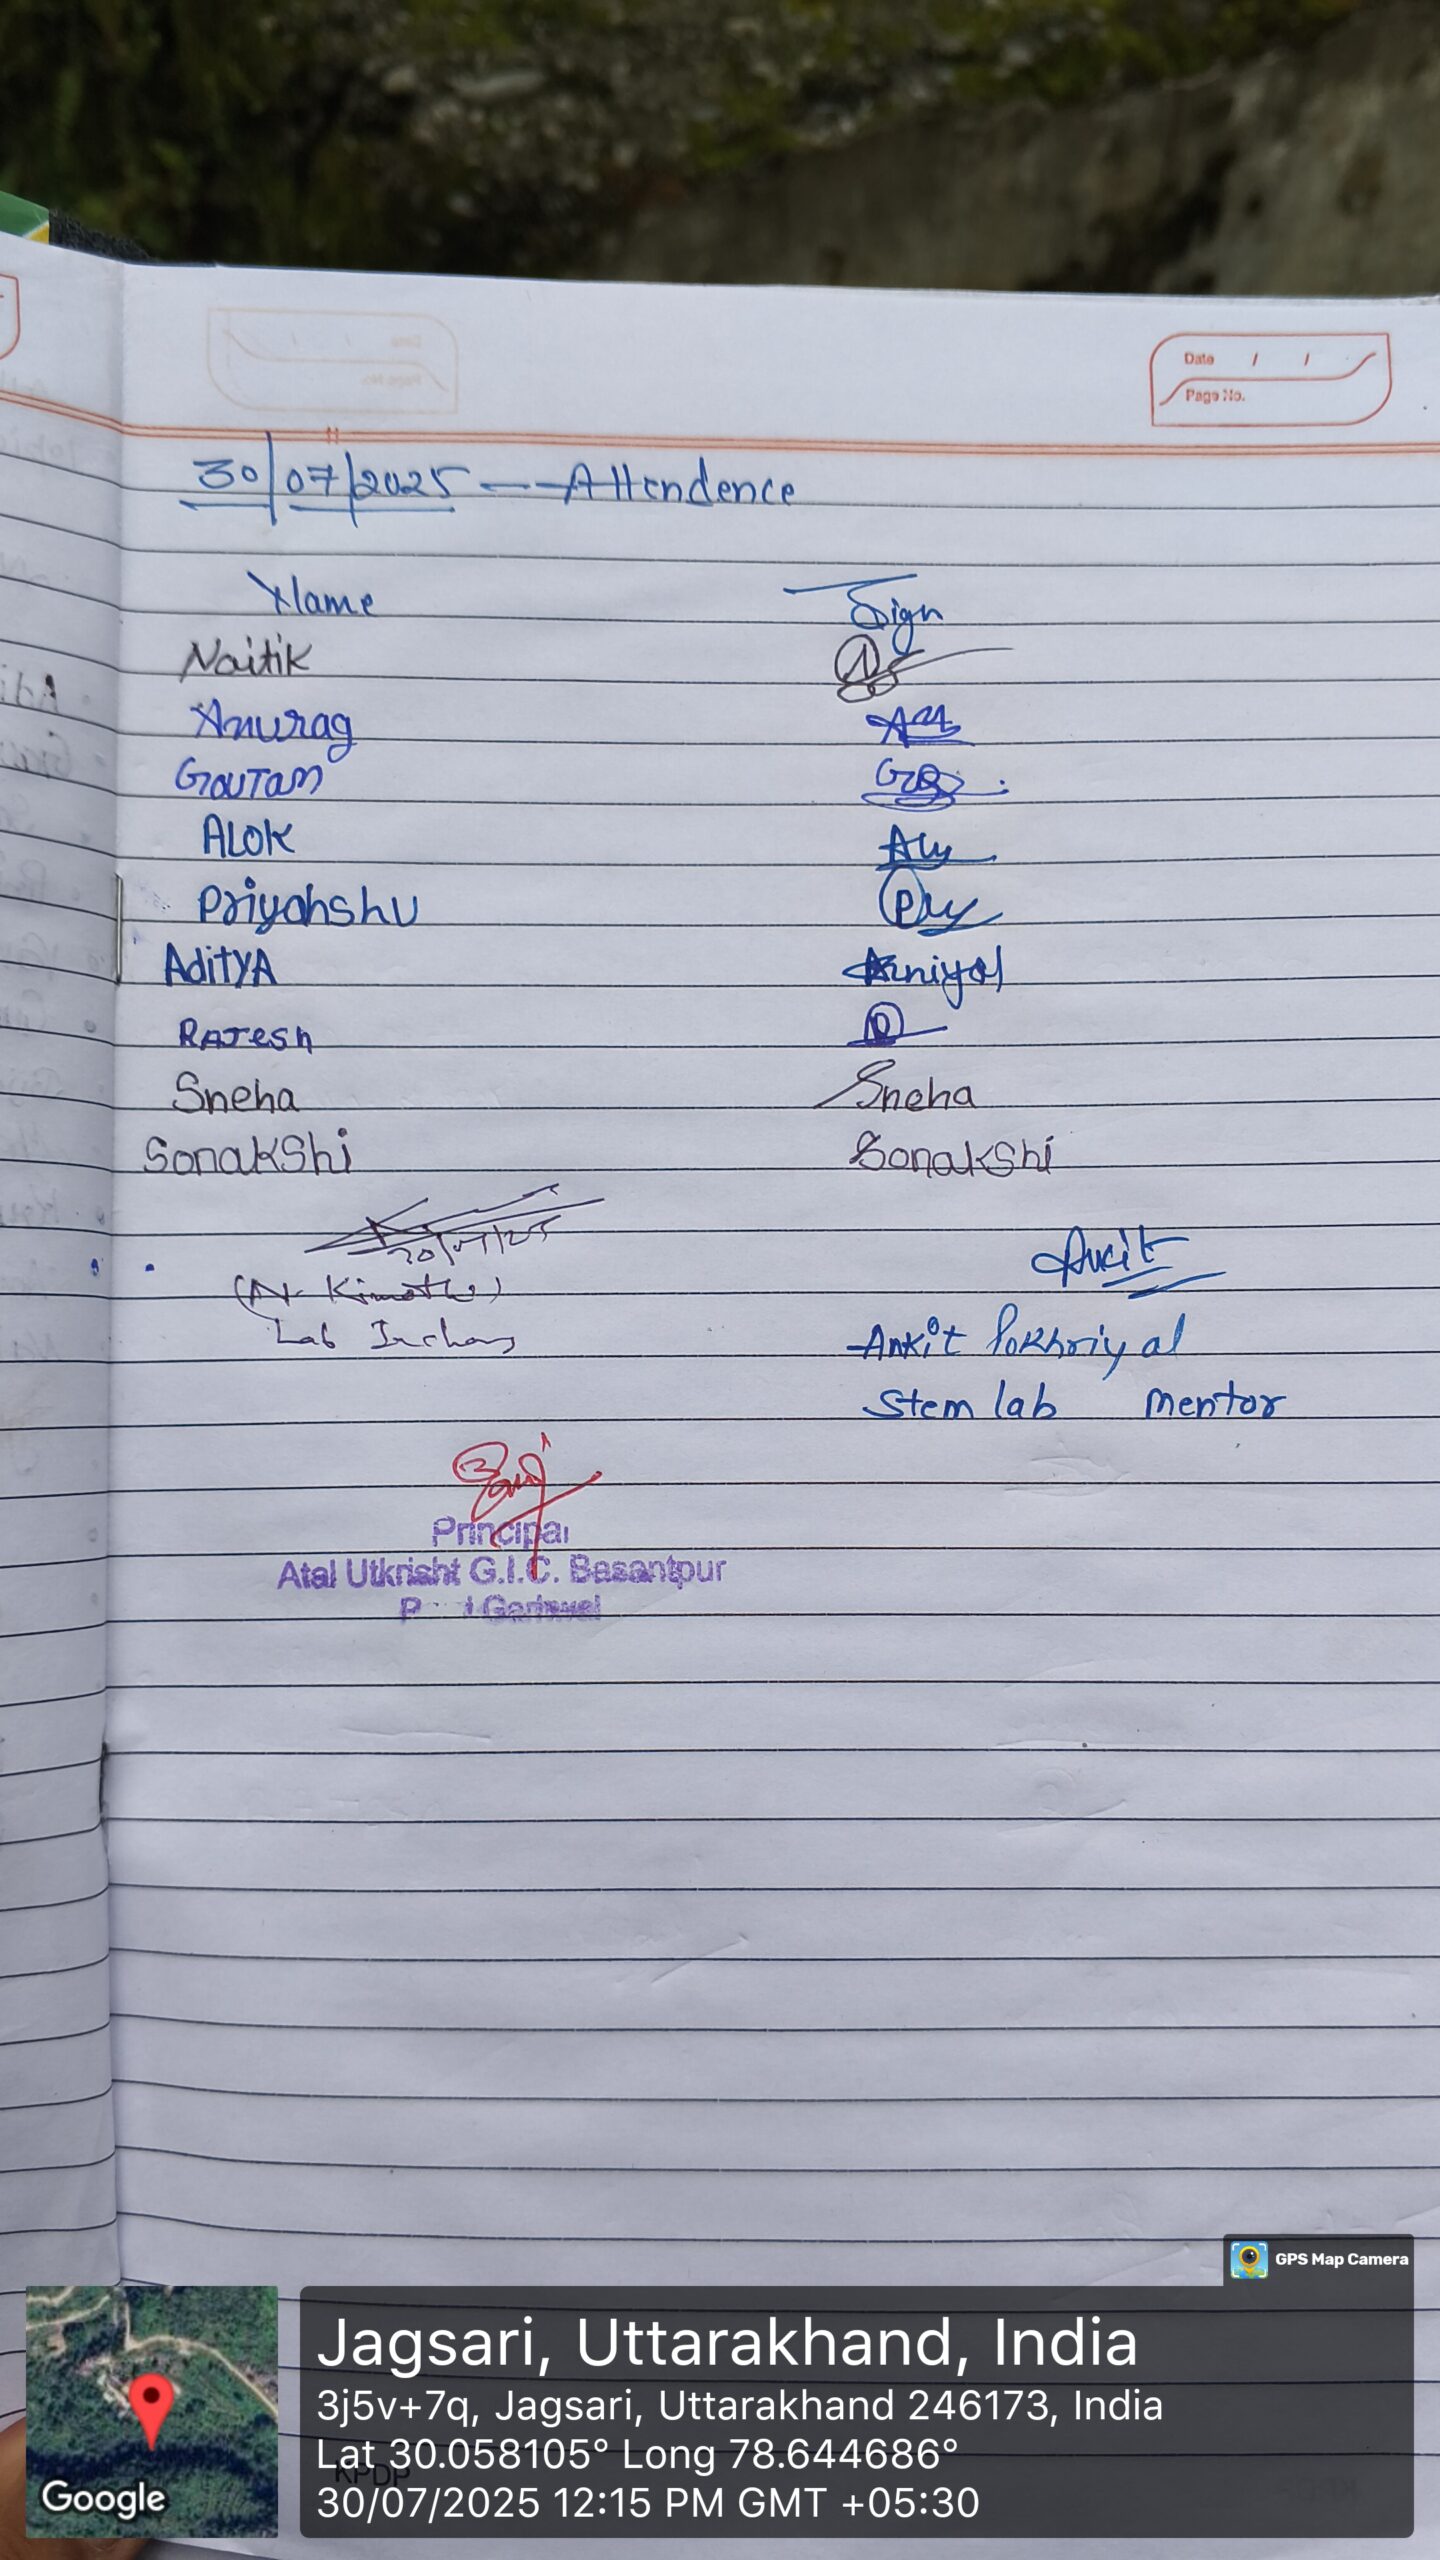 Date / /
Page No.
30/07/2025 -- Attendence
Name Sign
Naitik
Anurag
Goutam
ALOK Aly
Priyahshu
AdityA
RAJesh
Sneha Sneha
SonakShi SonakShi
30/07/25
Ankit
(A. Kimothi)
Lab
Ankit Pokhriyal
Stem lab mentor
Principal
Atal Utkrisht G.I.C. Basantpur
Garhwal
GPS Map Camera
Jagsari, Uttarakhand, India
3j5v+7q, Jagsari, Uttarakhand 246173, India
Lat 30.058105° Long 78.644686°
KPDP
30/07/2025 12:15 PM GMT +05:30
Google